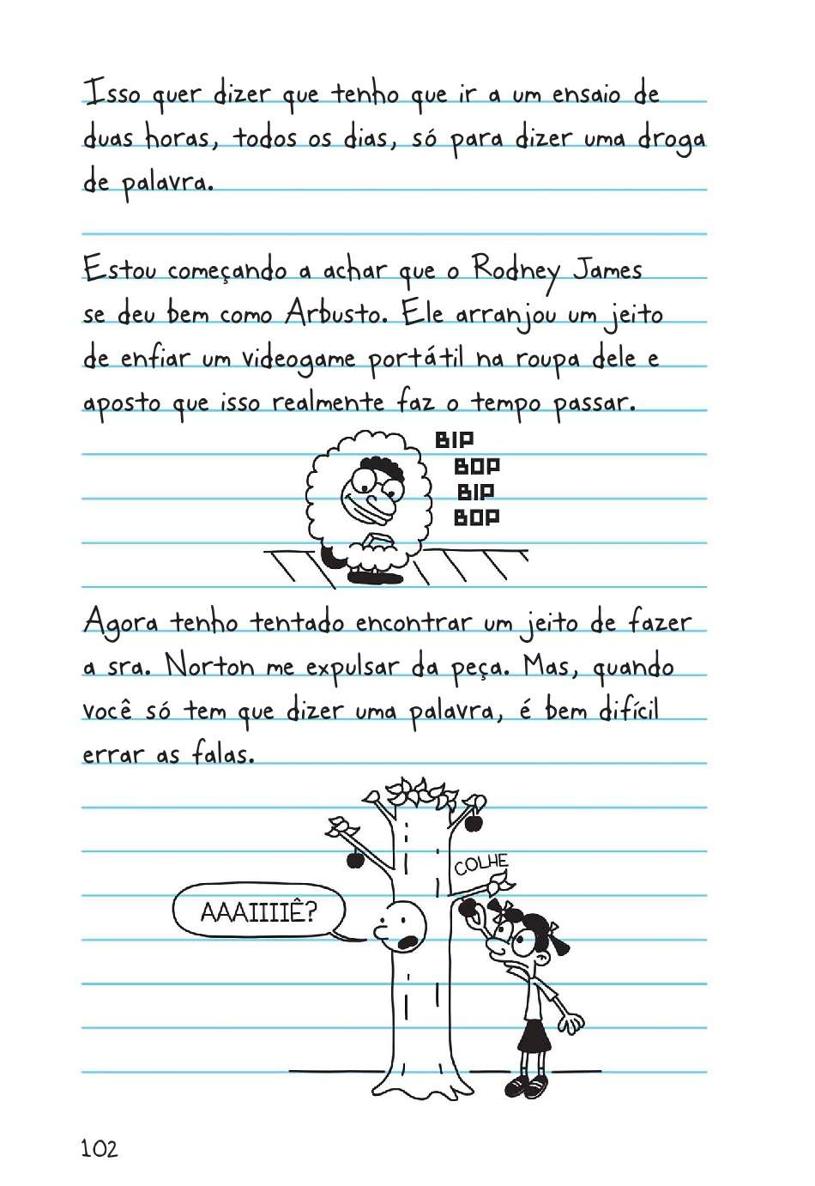 Isso quer dizer que tenho que ir a um ensaio de
duas horas, todos os dias, só para dizer uma droga
de palavra.
Estou começando a achar que o Rodney James
se deu bem como Arbusto. Ele arranjou um jeito
de enfiar um videogame portátil na roupa dele e
aposto que isso realmente faz o tempo passar.
BIP
BOP
BIP
BOP
Agora tenho tentado encontrar um jeito de fazer
a sra. Norton me expulsar da peça. Mas, quando
você só tem que dizer uma palavra, é bem difícil
errar as falas.
COLHE
AAAIIIIIÊ?
102